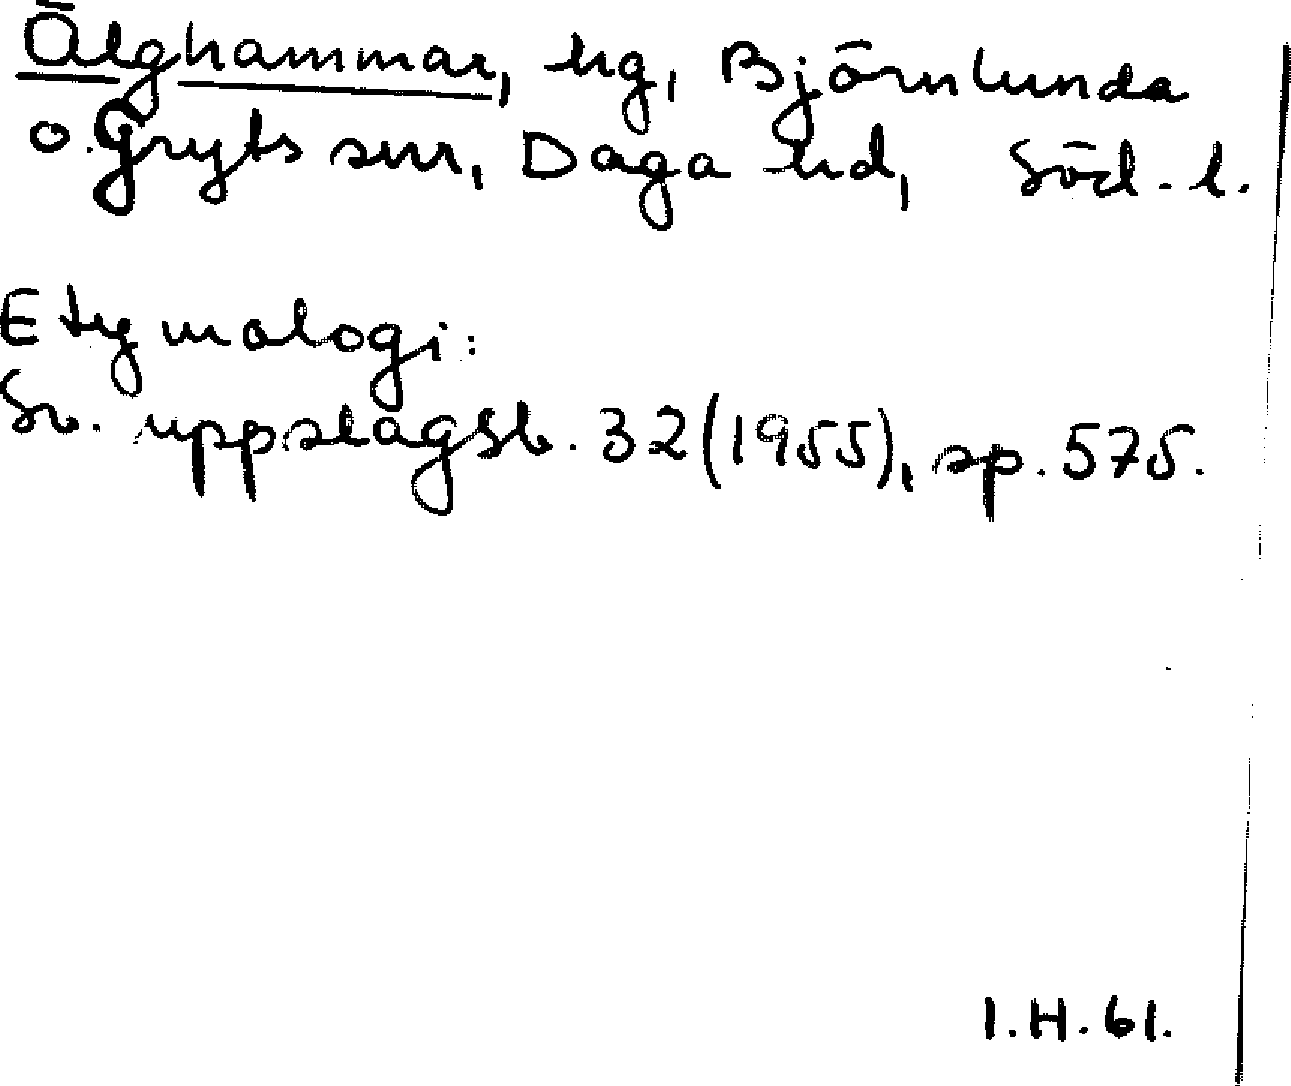 Älghammar, hg, Björnlunda
o. Gryts snr, Daga hd, Söd. l.
Etymologi:
Sv. uppslagsb. 32 (1955), sp. 575.
I.H. 61.